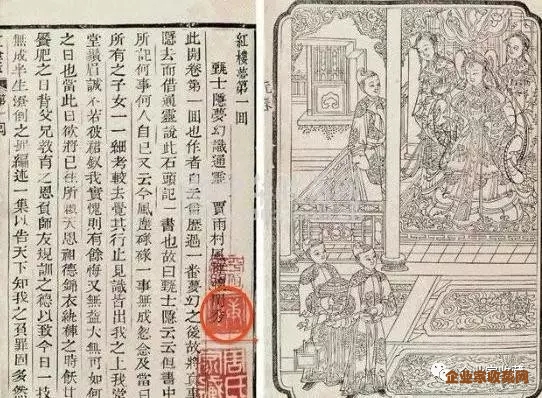 紅樓夢第一回
甄士隱夢幻識通靈 賈雨村風塵懷閨秀
此開卷第一回也作者自云曾歷過一番夢幻之後故將真事
隱去而借通靈說此石頭記一書也故曰甄士隱云云但書中
所記何事何人自己又云今風塵碌碌一事無成忽念及當日
所有之子女一一細考較去覺其行止見識皆出我之上我堂
堂鬚眉誠不若彼裙釵我實愧則有餘悔又無益大無可如何
之日也當此日欲將已往所賴天恩祖德錦衣紈袴之時飫甘
饜肥之日背父兄教育之恩負師友規訓之德以致今日一技
無成半生潦倒之罪編述一集以告天下知我之負罪固多然
第一回
元春
周氏家藏
企业家收藏网